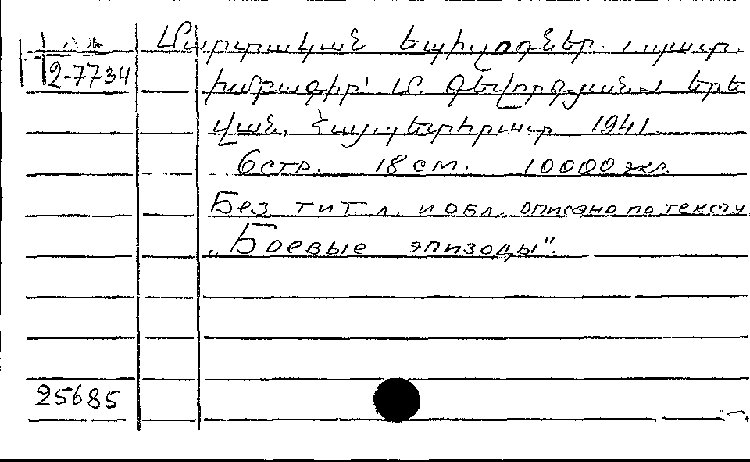 Մարտական եպիզոդներ. պատ.
2-7734
խմբագիր՝ Մ. Գևորգյան. Երե
վան, Հայպետհրատ 1941
6 стр. 18 см. 10000 экз.
Без тит. л. и обл. описано по тексту
„Боевые эпизоды".
25685